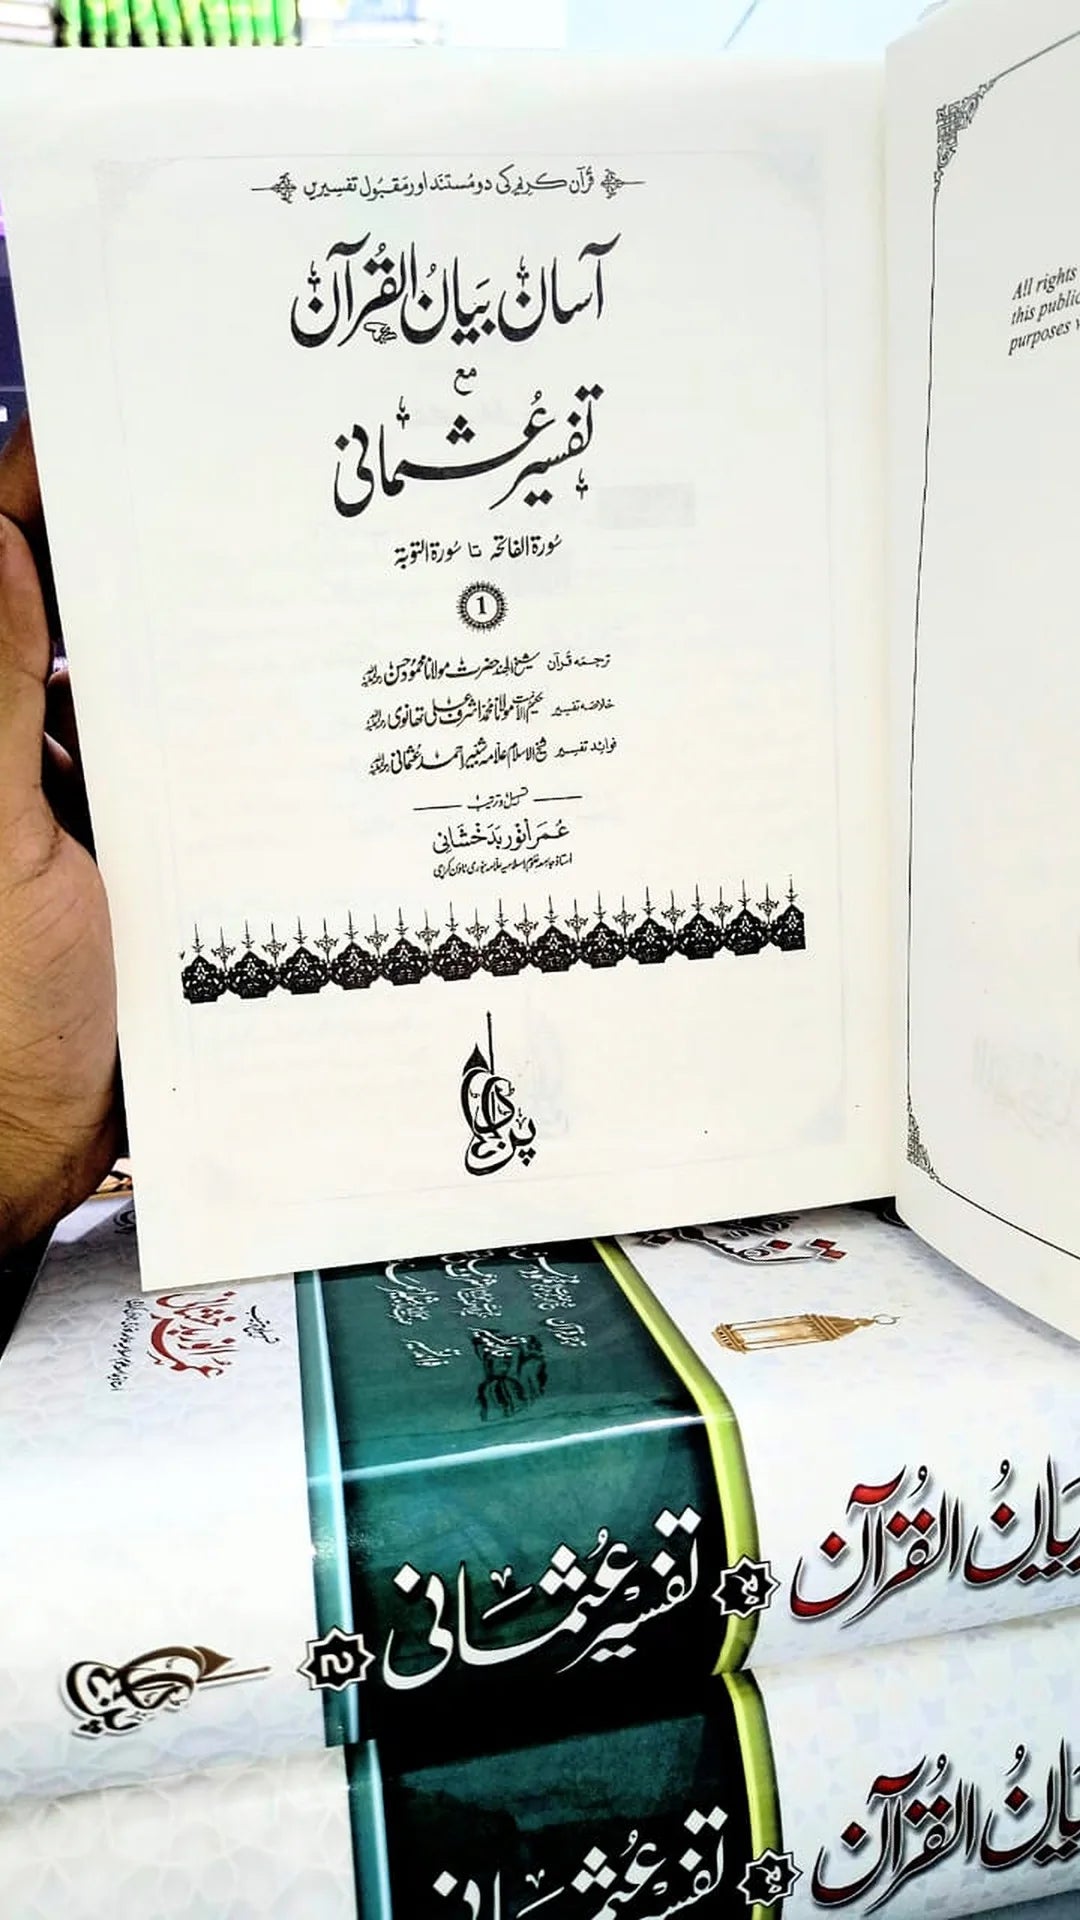 قرآن کریم کی دو مستند اور مقبول تفسیریں
آسان بیان القرآن
مع
تفسیر عثمانی
سورۃ الفاتحہ تا سورۃ التوبۃ
1
ترجمہ قرآن شیخ الہند حضرت مولانا محمود حسن
خلاصہ تفسیر حکیم الامت مولانا محمد اشرف علی تھانوی
فوائد تفسیر شیخ الاسلام علامہ شبیر احمد عثمانی
تسہیل و ترتیب
عمر انور بدخشانی
استاذ جامعہ علوم اسلامیہ علامہ بنوری ٹاؤن کراچی
All rights
this public
purposes
عمر انور بدخشانی
بیان القرآن
مع
تفسیر عثمانی
2
بیان القرآن
مع
تفسیر عثمانی